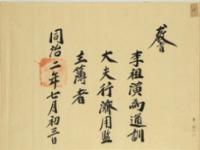 教旨
李祖演爲通訓
大夫行濟用監
主簿者
同治二年七月初三日